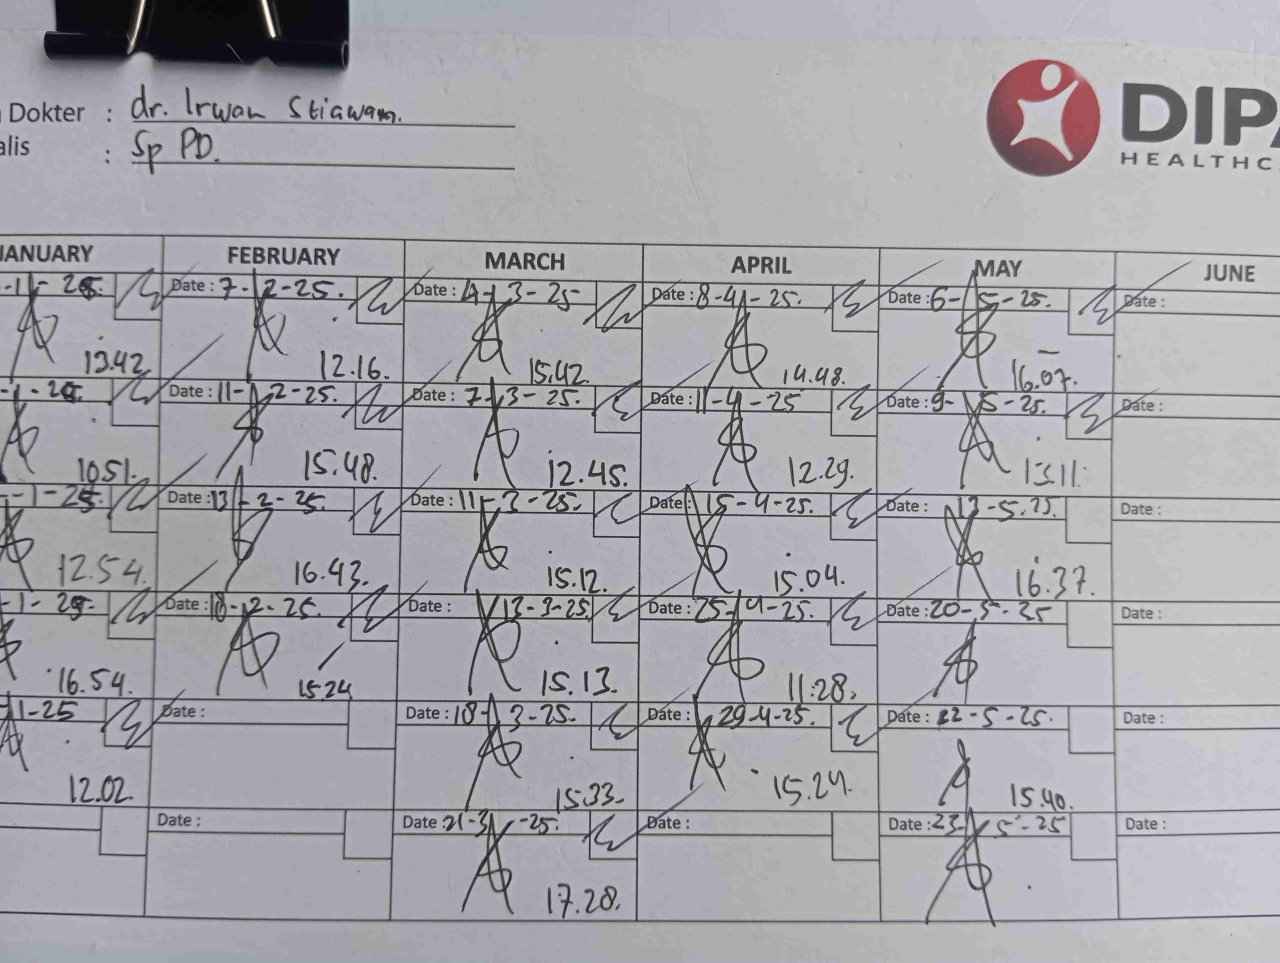 Dokter : dr. Irwan Stiawan.
alis : Sp PD.
DIPA
HEALTHC
JANUARY FEBRUARY MARCH APRIL MAY JUNE
Date : 7-2-25. Date : 4-3-25 Date : 8-4-25. Date : 6-5-25. Date :
13.42 12.16. 15.42. 14.48. 16.07.
Date : 11-2-25. Date : 7-3-25. Date : 11-4-25 Date : 9-5-25. Date :
10.51. 15.48. 12.45. 12.29. 13.11.
-1-25. Date : 13-2-25. Date : 11-3-25. Date : 15-4-25. Date : 13-5-25. Date :
12.54. 16.43. 15.12. 15.04. 16.37.
Date : 18-2-25. Date : 13-3-25. Date : 25-4-25. Date : 20-5-25 Date :
16.54. 15.24 15.13. 11.28.
1-25 Date : Date : 18-3-25. Date : 29-4-25. Date : 22-5-25. Date :
12.02. 15.33. 15.24. 15.40.
Date : Date : 21-3-25. Date : Date : 23-5-25 Date :
17.28.